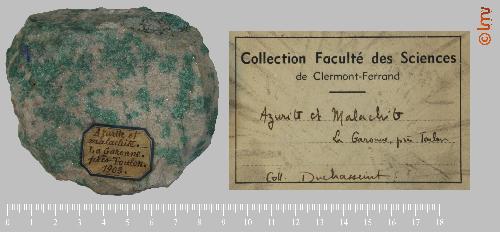 Azurite et
malachite.
La Garonne.
près Toulon.
1903.
Collection Faculté des Sciences
de Clermont-Ferrand
Azurite et Malachite
La Garonne, près Toulon
Coll. Duchasseint
lmv
0 1 2 3 4 5 6 7 8 9 10 11 12 13 14 15 16 17 18